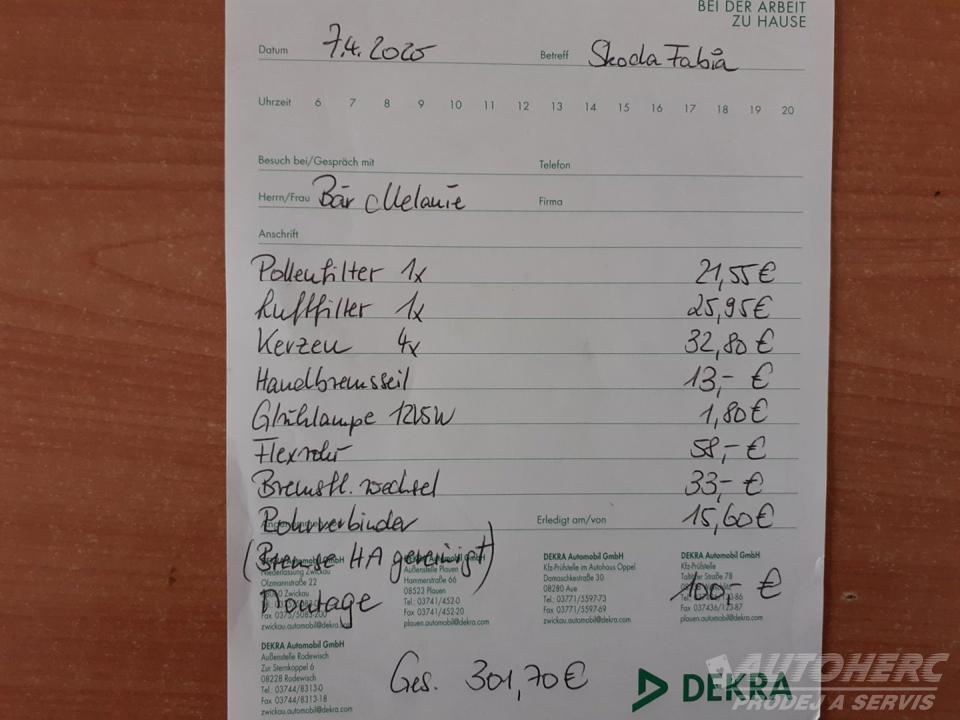 BEI DER ARBEIT
ZU HAUSE
Datum 7.4.2025 Betreff Skoda Fabia
Uhrzeit 6 7 8 9 10 11 12 13 14 15 16 17 18 19 20
Besuch bei/Gespräch mit Telefon
Herrn/Frau Bär Melanie Firma
Anschrift
Pollenfilter 1x 21,55€
Luftfilter 1x 25,95€
Kerzen 4x 32,80€
Handbremsseil 13,- €
Glühlampe 12V5W 1,80€
Flexrohr 58,- €
Bremsfl. wechsel 33,- €
Rohrverbinder Erledigt am/von 15,60€
(Bremse HA gereinigt)
Montage 100,- €
DEKRA Automobil GmbH
Niederlassung Zwickau
Olzmannstraße 22
Zwickau
zwickau.automobil@dekra.com
Außenstelle Plauen
Hammerstraße 66
08523 Plauen
Tel.: 03741/452-0
Fax 03741/452-20
plauen.automobil@dekra.com
DEKRA Automobil GmbH
Kfz-Prüfstelle im Autohaus Oppel
Damaschkestraße 30
08280 Aue
Tel.: 03771/5597-73
Fax 03771/5597-69
DEKRA Automobil GmbH
Kfz-Prüfstelle
Straße 78
plauen.automobil@dekra.com
DEKRA Automobil GmbH
Außenstelle Rodewisch
Zur Sternkoppel 6
08228 Rodewisch
Tel.: 03744/8313-0
Fax 03744/8313-18
zwickau.automobil@dekra.com
Ges. 301,70€
DEKRA
AUTOHERC
PRODEJ A SERVIS